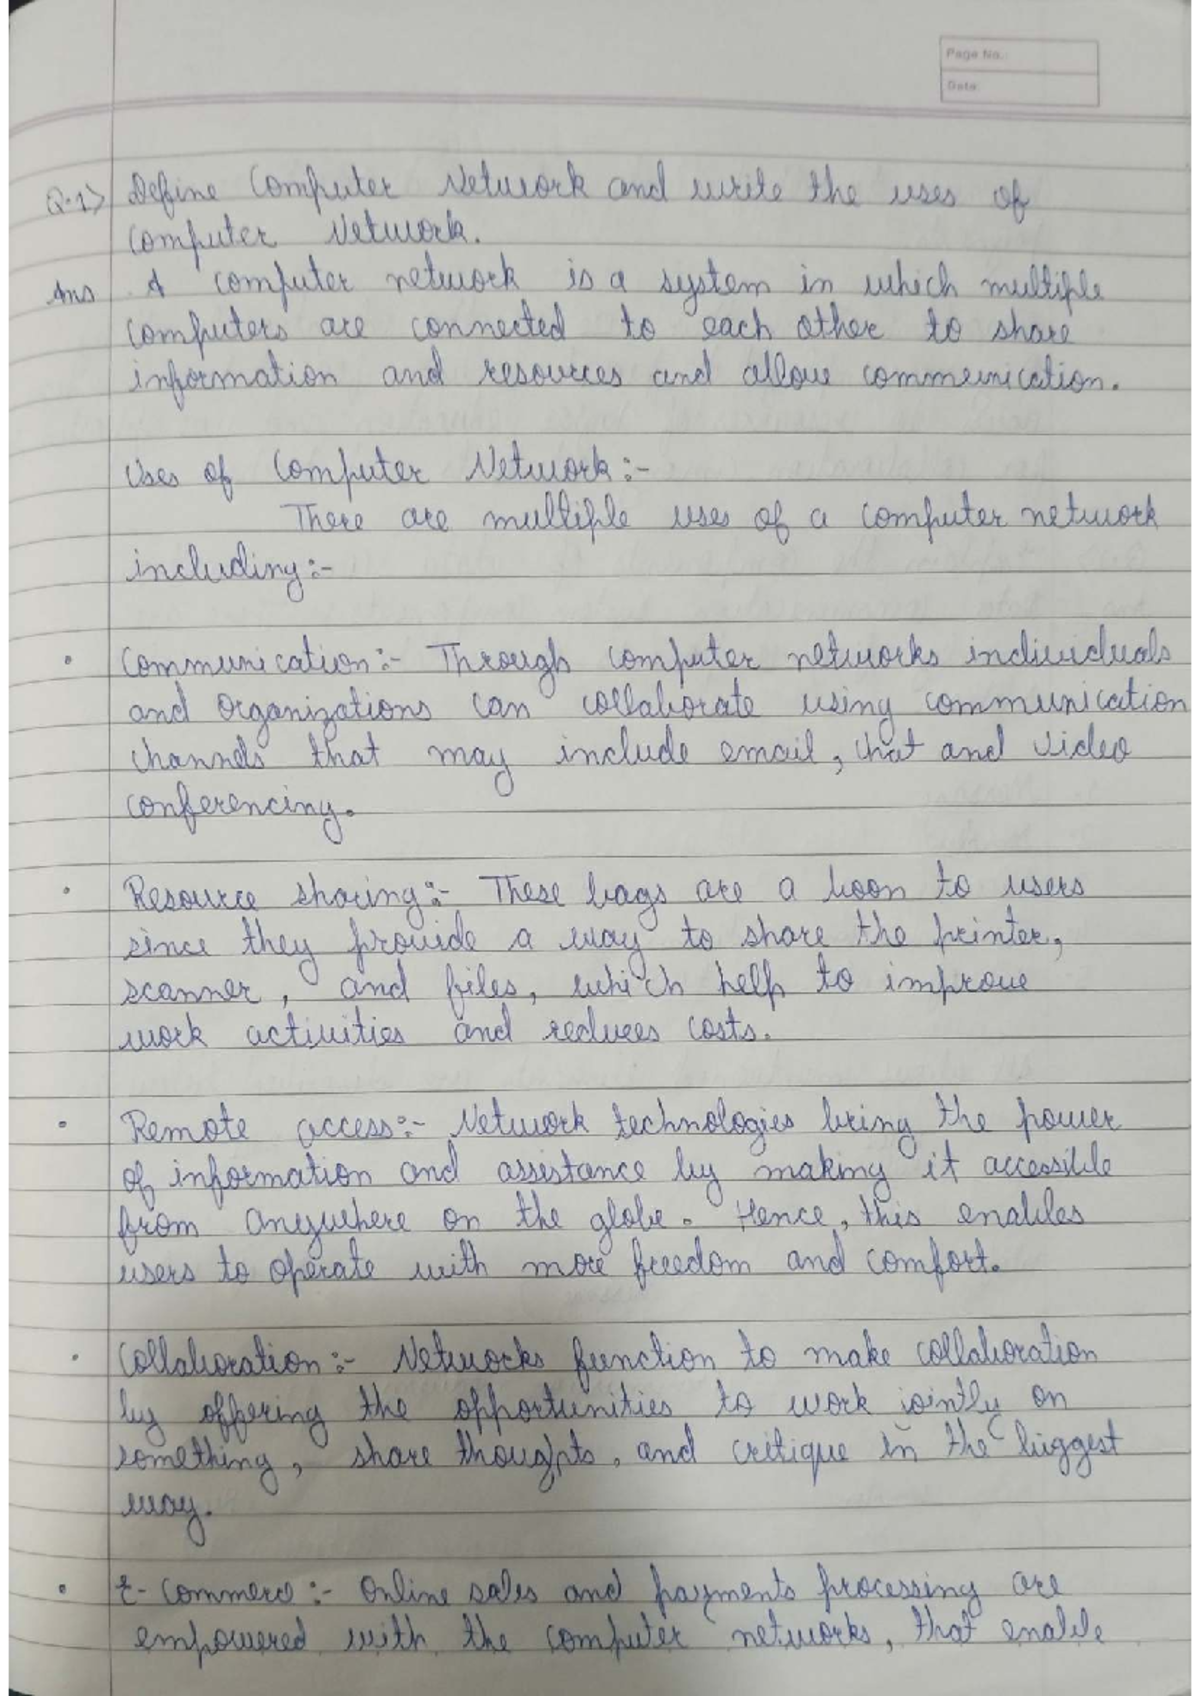 Page No.:
Date
Q.1> Define Computer Network and write the uses of
Computer Network.
Ans A computer network is a system in which multiple
computers are connected to each other to share
information and resources and allow communication.
Uses of Computer Network:-
There are multiple uses of a computer network
including:-
• Communication:- Through computer networks individuals
and organizations can collaborate using communication
channels that may include email, chat and video
conferencing.
• Resource sharing:- These bags are a boon to users
since they provide a way to share the printer,
scanner, and files, which help to improve
work activities and reduces costs.
• Remote access:- Network technologies bring the power
of information and assistance by making it accessible
from anywhere on the globe. Hence, this enables
users to operate with more freedom and comfort.
• Collaboration:- Networks function to make collaboration
by offering the opportunities to work jointly on
something, share thoughts, and critique in the biggest
way.
• E-Commerc:- Online sales and payments processing are
empowered with the computer networks, that enable